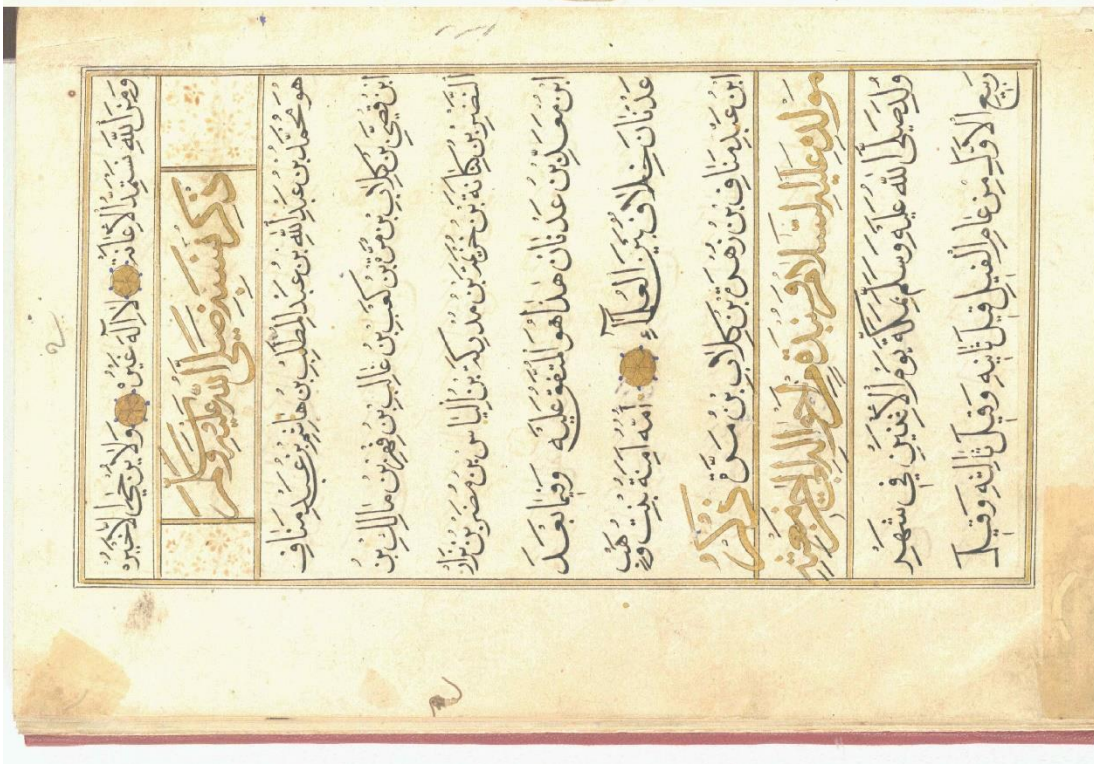 ومن الله نستمد الاعانة لا اله غيره ولا يرجى الا خيره
ذكر نسبه صلى الله عليه وسلم
هو محمد بن عبد الله بن عبد المطلب بن هاشم بن عبد مناف
ابن قصي بن كلاب بن مرة بن كعب بن غالب بن فهر بن مالك بن
النضر بن كنانة بن خزيمة بن مدركة بن الياس بن مضر بن نزار
ابن معد بن عدنان هذا هو المتفق عليه وفيما بعد
عدنان خلاف بين العلماء امه آمنة بنت وهب
ابن عبد مناف بن زهرة بن كلاب بن مرة ذكر
مولده عليه السلام ونبذة من احواله الى حين
ولد صلى الله عليه وسلم بمكة يوم الاثنين في شهر
ربيع الاول من عام الفيل قيل ثانيه وقيل ثالثه وقيل